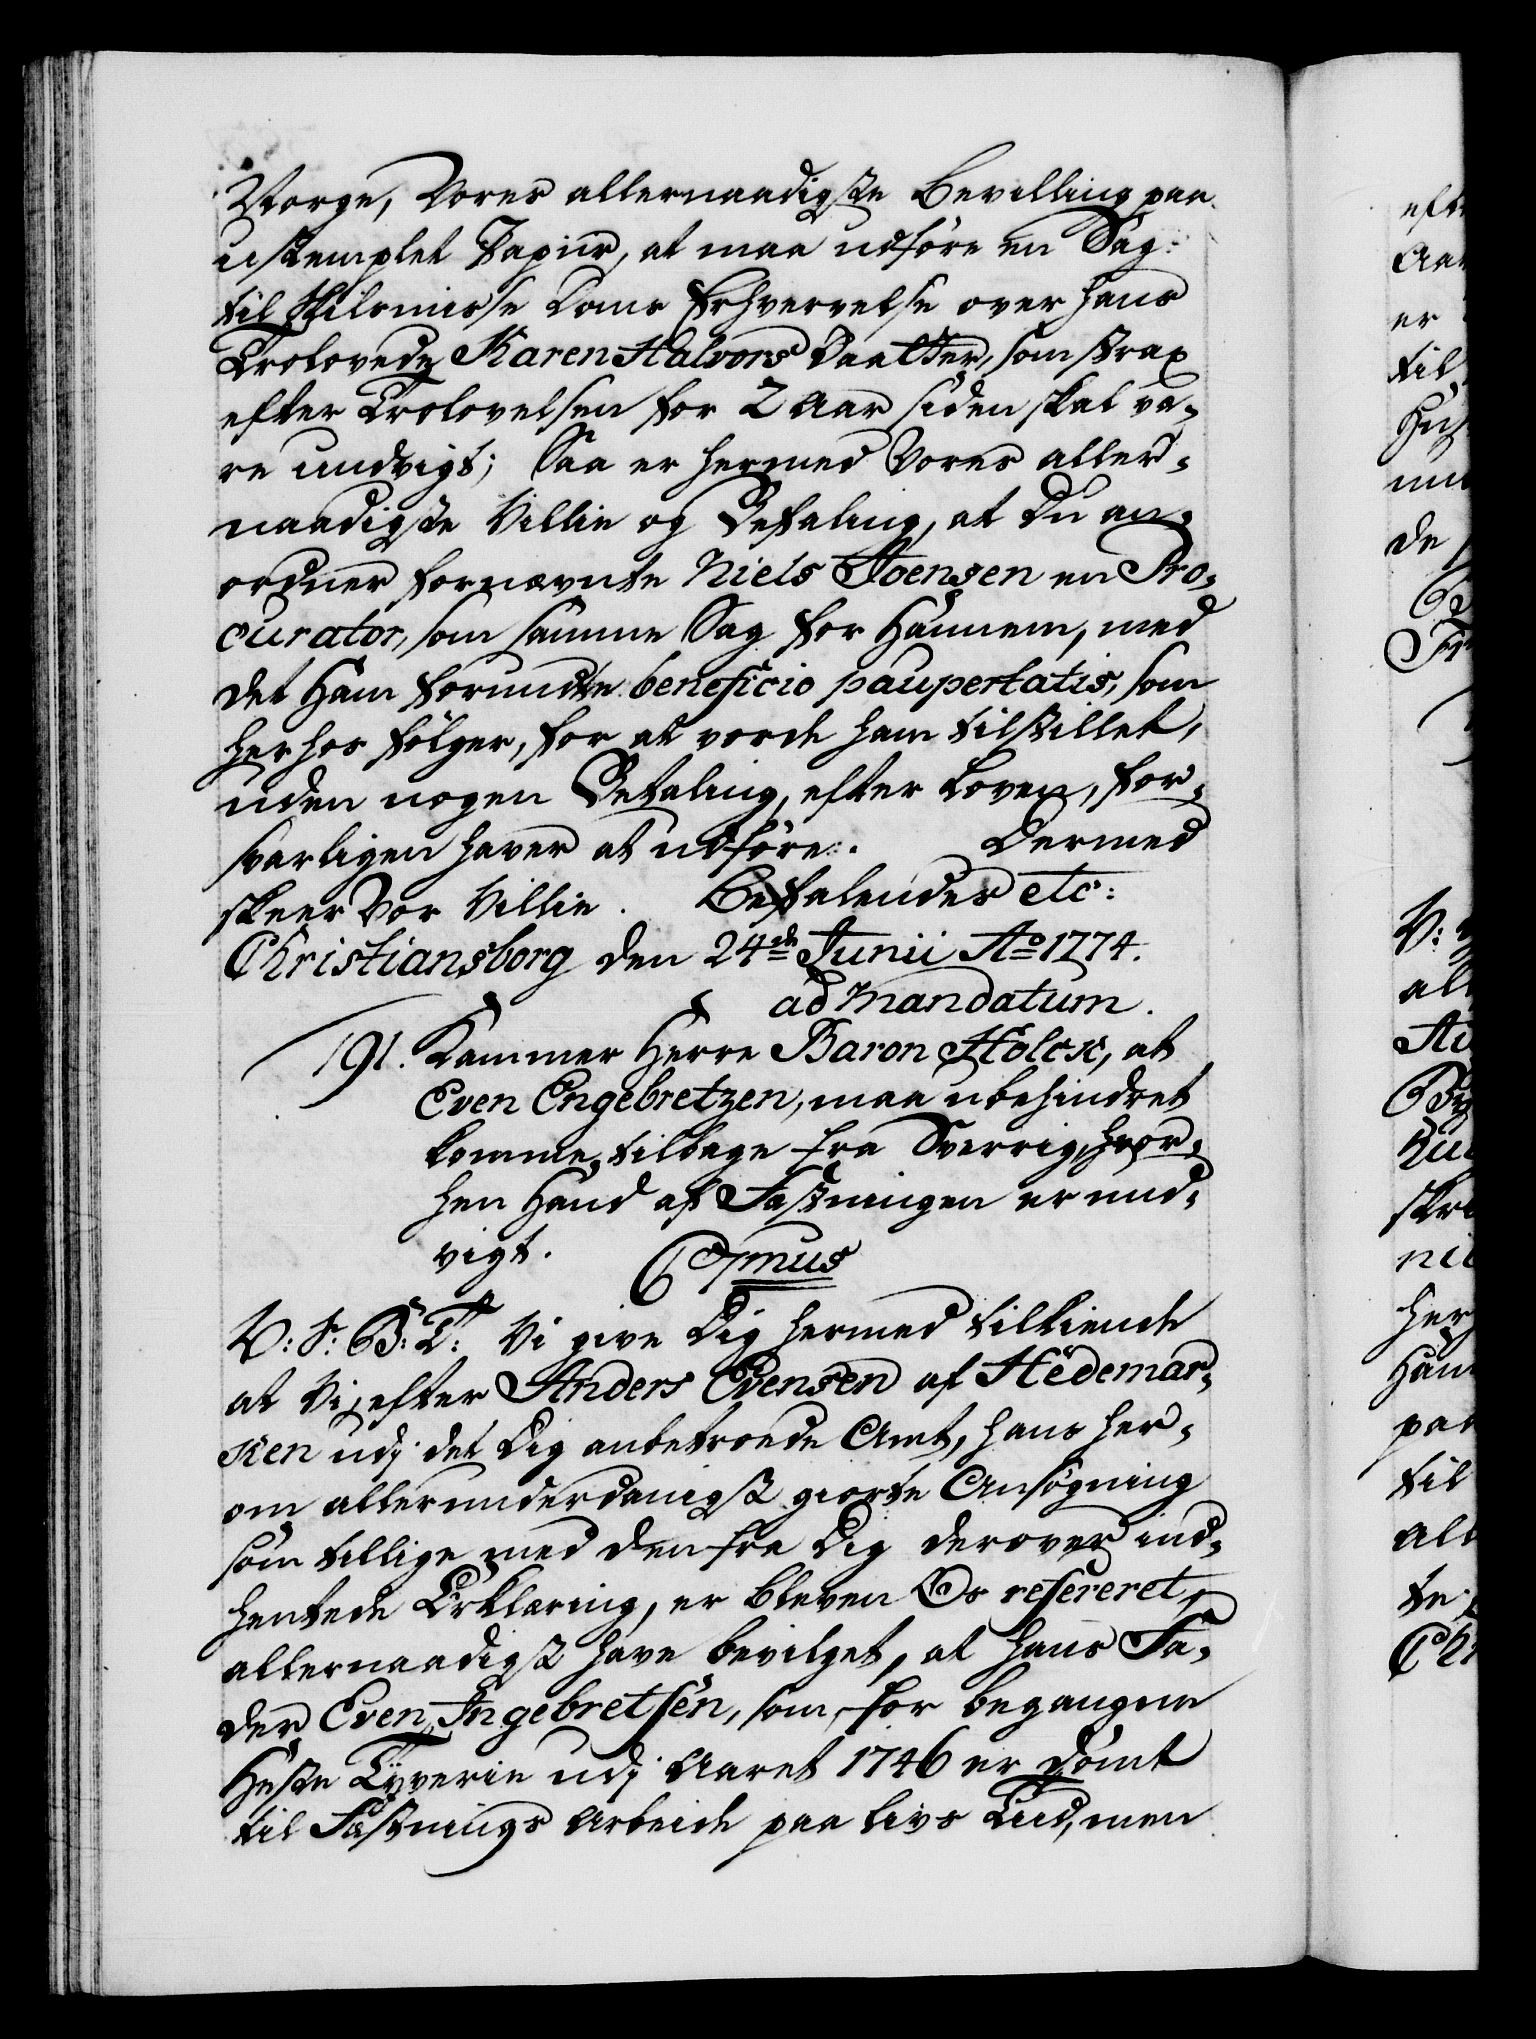 Norge, Vores allernaadigste Bevilling paa
ustemplet Papiir, at maa udføre en Sag
til Skilsmisse Doms Erhvervelse over hans
Trolovede Karen Halvors Daatter, som strax
efter Trolovelsen for 2 Aar siden skal væ-
re undvigt; Saa er hermed Vores aller-
naadigste Villie og Befaling, at Du an-
ordner fornævnte Niels Joensen en Pro-
curator, som samme Sag for Hannem, med
det Ham forundte beneficio paupertatis, som
herhos følger, for at vorde ham tilstillet,
uden nogen Betaling, efter Loven, for-
svarligen haver at udføre. Dermed
skeer Vor Villie. Befalendes etc:
Christiansborg den 24de Junii Ao 1774.
ad Mandatum.
191. Kammer Herre Baron Holck, at
Even Engebretzen, maa ubehindret
komme tilbage fra Sverrig, hvor-
hen Hand af Fæstningen er und-
vigt.
V: S: B: T: Vi give Dig hermed tilkiende
at Vi, efter Anders Evensen af Hedemar-
ken udj det Dig anbetroede Amt, hans her-
om allerunderdanigst giorte Ansøgning
som tillige med den fra Dig derover ind-
hentede Erklæring, er bleven Os refereret,
allernaadigst have bevilget, at hans Fa-
der Even Ingebretsen, som for begangne
Heste Tyverie udj Aaret 1746 er dømt
til Fæstnings Arbeide paa Livs Tiid, men